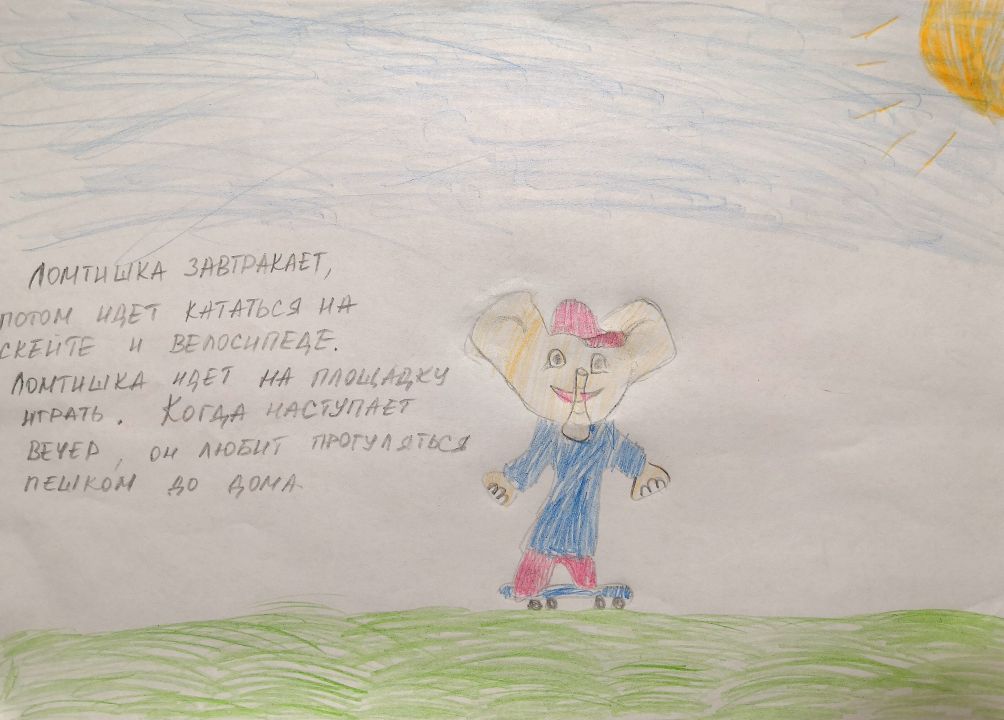 Ломтишка завтракает,
потом идет кататься на
скейте и велосипеде.
Ломтишка идет на площадку
играть. Когда наступает
вечер, он любит прогуляться
пешком до дома.